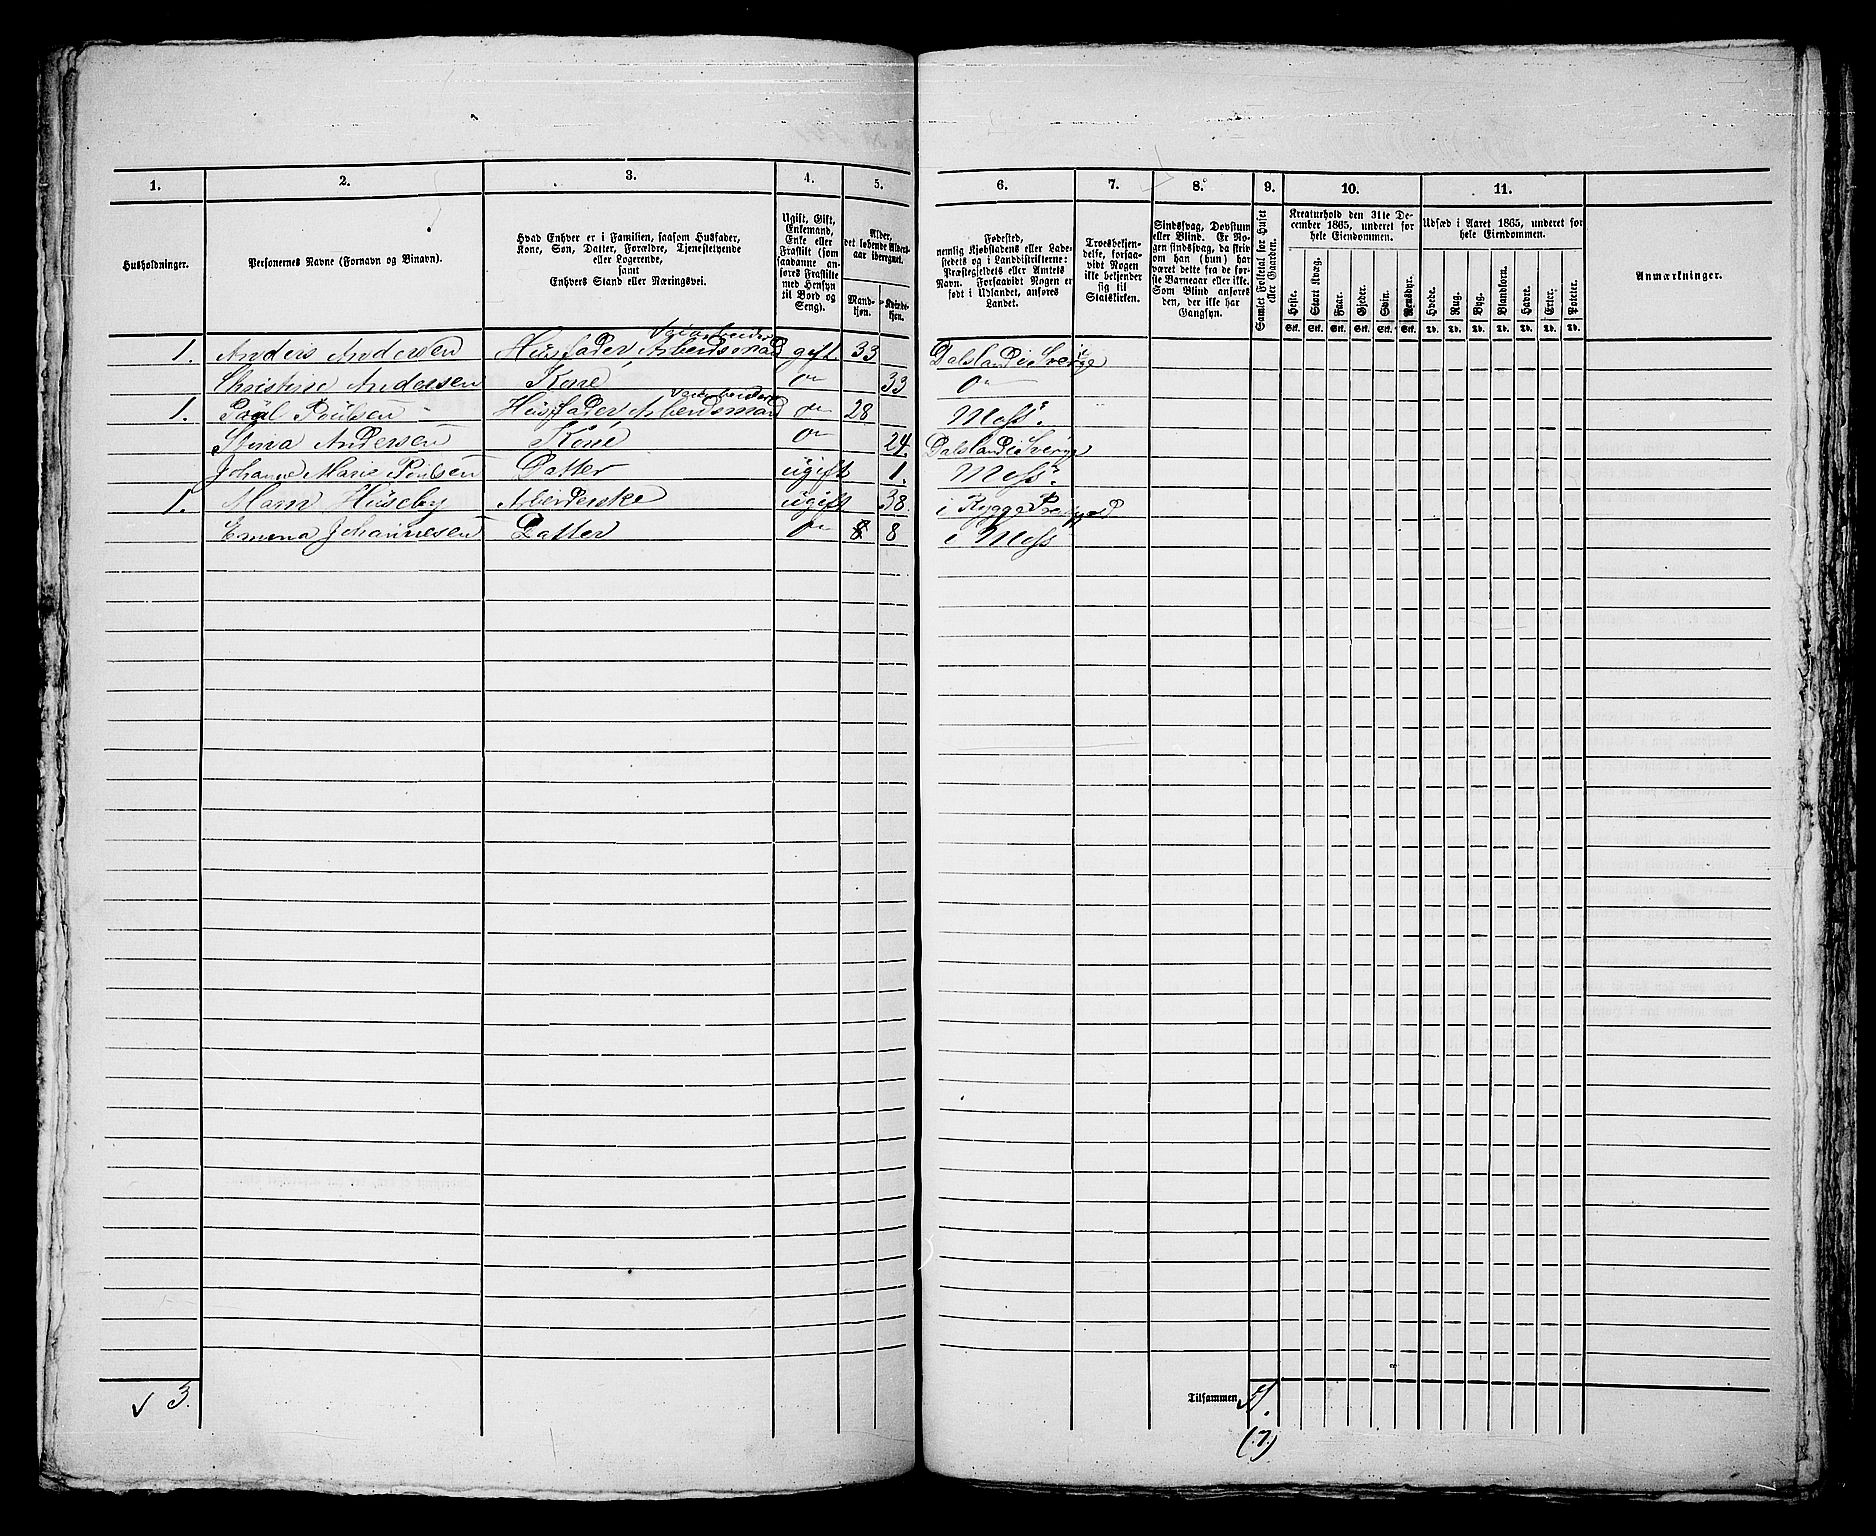 1. 2. 3. 4. 5. 6. 7. 8. 9. 10. 11.
Husholdninger.
Personernes Navne (Fornavn og Binavn).
Hvad Enhver er i Familien, saasom Husfader,
Kone, Søn, Datter, Forældre, Tjenestetyende
eller Logerende,
samt
Enhvers Stand eller Næringsvei.
Ugift, Gift,
Enkemand,
Enke eller
Fraskilt (som
saadanne an-
føres Fraskilte
med Hensyn
til Bord og
Seng).
Alder,
det løbende Alders-
aar iberegnet.
Mand-
kjøn.
Kvinde-
kjøn.
Fødested,
nemlig Kjøbstadens eller Lade-
stedets og i Landdistrikterne:
Præstegjeldets eller Amtets
Navn. Forsaavidt Nogen er
født i Udlandet, anføres
Landet.
Troesbekjen-
delse, forsaa-
vidt Nogen
ikke bekjender
sig til
Statskirken.
Sindssvag, Døvstum
eller Blind. Er No-
gen sindssvag, da skriv
om han (hun) har
været dette fra de før-
ste Barneaar eller ikke.
Som Blind anføres
den, der ikke har
Gangsyn.
Samlet Folketal for Huset
eller Gaarden.
Kreaturhold den 31te De-
cember 1865, underet for
hele Eiendommen.
Heste. Stort Kvæg. Faar. Gjeder. Svin. Rensdyr.
Stk. Stk. Stk. Stk. Stk. Stk.
Udsæd i Aaret 1865, underet for
hele Eiendommen.
Hvede. Rug. Byg. Blandkorn. Havre. Erter. Poteter.
Td. Td. Td. Td. Td. Td. Td.
Anmærkninger.
Veiarbeider
1. Anders Andersen Husfader, Arbeidsmand gift 33 Dalsland i Sverige
Christine Andersen Kone do 33 do
Veiarbeider
1. Poul Poulsen Husfader Arbeidsmand do 28 Moss.
Stina Andersen Kone do 24. Dalsland i Sverige
Johanne Marie Poulsen Datter ugift 1. Moss.
1. Maren Huseby Arbeiderske ugift 38. i Rygge Præstegjeld
Emma Johannesen Datter do 8 8 i Moss
3. Tilsammen 7.
(7)